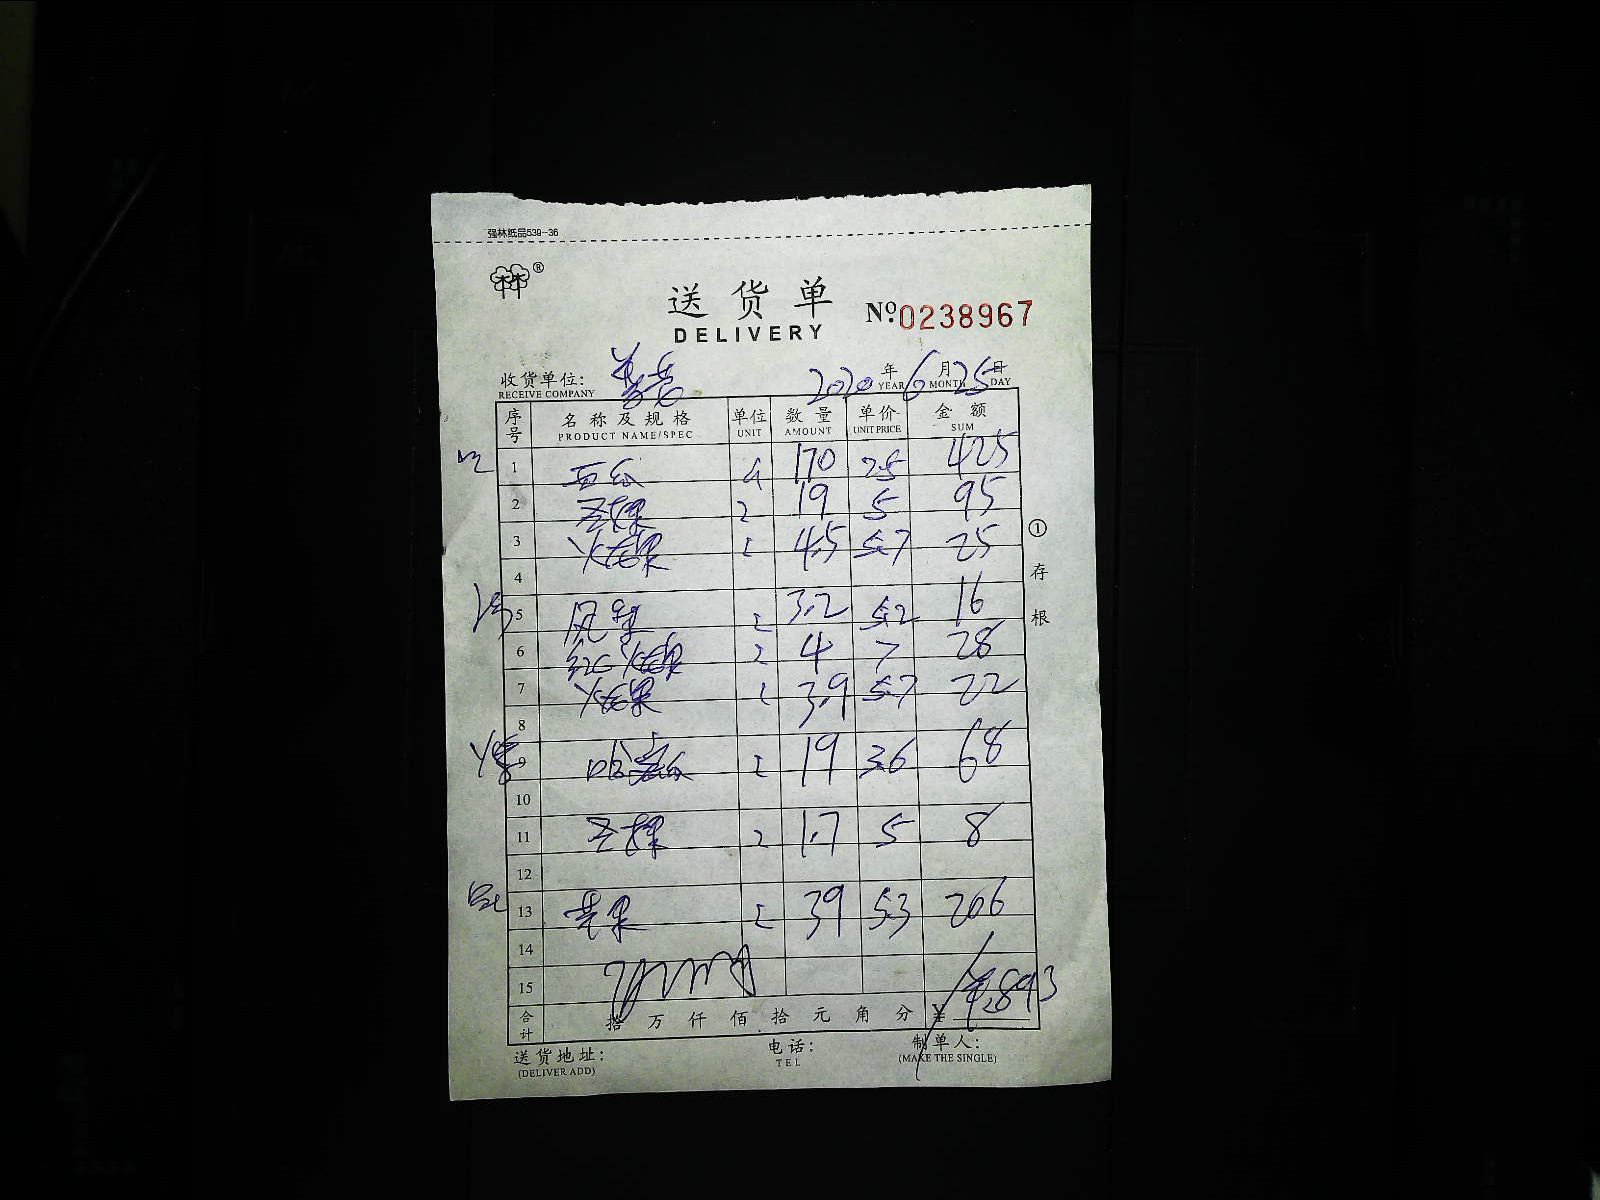 强林纸品539-36
林®
送货单
DELIVERY
Nº 0238967
收货单位:
RECEIVE COMPANY
2020 年 6 月 25 日
YEAR MONTH DAY
序号 名称及规格 单位 数量 单价 金额
PRODUCT NAME/SPEC UNIT AMOUNT UNIT PRICE SUM
1 170 2.5 425
2 19 5 95
3 火龙果 4.5 5.7 25
4
5 凤梨 3.2 5.2 16
6 红心火龙果 4 7 28
7 火龙果 3.9 5.7 22
8
9 哈密瓜 19 3.6 68
10
11 1.7 5 8
12
13 39 5.3 206
14
15
合计 拾 万 仟 佰 拾 元 角 分 ¥ 893
①存根
送货地址:
(DELIVER ADD)
电话:
TEL
制单人:
(MAKE THE SINGLE)